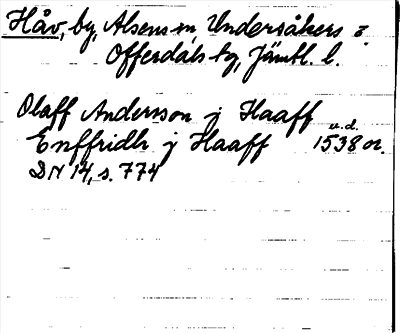 Håv, by, Alsens sn, Undersåkers o
Offerdals tg, Jämtl. l.
Olaff Andersson j Haaff
u.d.
Enffridh j Haaff 1538 or.
DN 14, s. 774